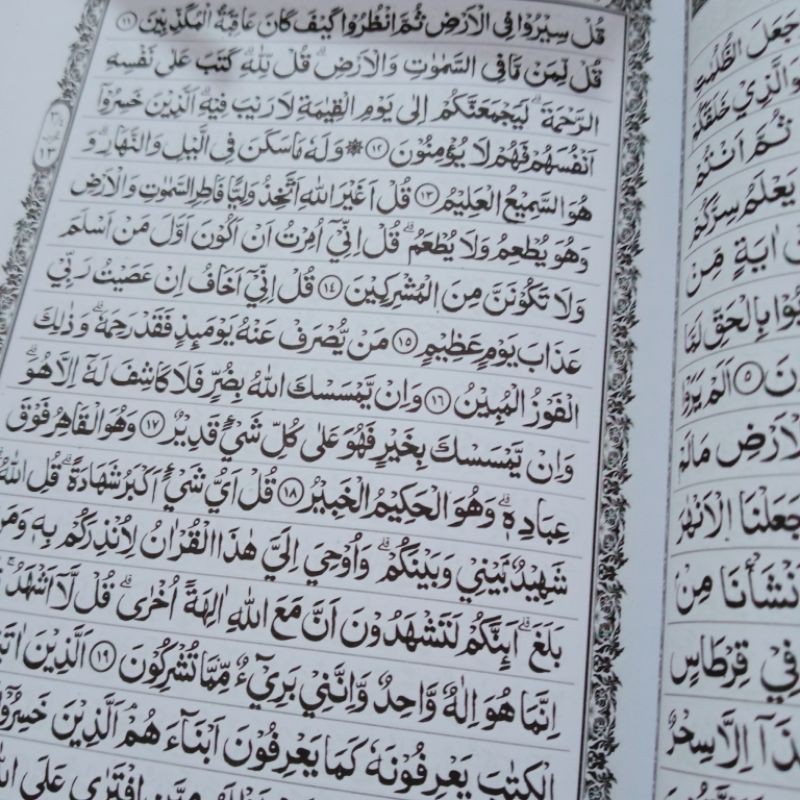 قُلْ سِيْرُوْا فِى الْاَرْضِ ثُمَّ انْظُرُوْا كَيْفَ كَانَ عَاقِبَةُ الْمُكَذِّبِيْنَ ١١
قُلْ لِّمَنْ مَّا فِى السَّمٰوٰتِ وَالْاَرْضِۗ قُلْ لِّلّٰهِ ۗ كَتَبَ عَلٰى نَفْسِهِ
الرَّحْمَةَ ۗ لَيَجْمَعَنَّكُمْ اِلٰى يَوْمِ الْقِيٰمَةِ لَا رَيْبَ فِيْهِۗ اَلَّذِيْنَ خَسِرُوْٓا
اَنْفُسَهُمْ فَهُمْ لَا يُؤْمِنُوْنَ ١٢ ۞ وَلَهٗ مَا سَكَنَ فِى الَّيْلِ وَالنَّهَارِۗ وَ
هُوَ السَّمِيْعُ الْعَلِيْمُ ١٣ قُلْ اَغَيْرَ اللّٰهِ اَتَّخِذُ وَلِيًّا فَاطِرِ السَّمٰوٰتِ وَالْاَرْضِ
وَهُوَ يُطْعِمُ وَلَا يُطْعَمُ ۗ قُلْ اِنِّيْٓ اُمِرْتُ اَنْ اَكُوْنَ اَوَّلَ مَنْ اَسْلَمَ
وَلَا تَكُوْنَنَّ مِنَ الْمُشْرِكِيْنَ ١٤ قُلْ اِنِّيْٓ اَخَافُ اِنْ عَصَيْتُ رَبِّيْ
عَذَابَ يَوْمٍ عَظِيْمٍ ١٥ مَنْ يُّصْرَفْ عَنْهُ يَوْمَىِٕذٍ فَقَدْ رَحِمَهٗ ۗ وَذٰلِكَ
الْفَوْزُ الْمُبِيْنُ ١٦ وَاِنْ يَّمْسَسْكَ اللّٰهُ بِضُرٍّ فَلَا كَاشِفَ لَهٗٓ اِلَّا هُوَ ۗ
وَاِنْ يَّمْسَسْكَ بِخَيْرٍ فَهُوَ عَلٰى كُلِّ شَيْءٍ قَدِيْرٌ ١٧ وَهُوَ الْقَاهِرُ فَوْقَ
عِبَادِهٖۗ وَهُوَ الْحَكِيْمُ الْخَبِيْرُ ١٨ قُلْ اَيُّ شَيْءٍ اَكْبَرُ شَهَادَةً ۗ قُلِ اللّٰهُ
شَهِيْدٌۢ بَيْنِيْ وَبَيْنَكُمْ ۗ وَاُوْحِيَ اِلَيَّ هٰذَا الْقُرْاٰنُ لِاُنْذِرَكُمْ بِهٖ وَمَنْ
بَلَغَ ۗ اَىِٕنَّكُمْ لَتَشْهَدُوْنَ اَنَّ مَعَ اللّٰهِ اٰلِهَةً اُخْرٰىۗ قُلْ لَّآ اَشْهَدُ ۚ
اِنَّمَا هُوَ اِلٰهٌ وَّاحِدٌ وَّاِنَّنِيْ بَرِيْۤءٌ مِّمَّا تُشْرِكُوْنَ ١٩ اَلَّذِيْنَ
الْكِتٰبَ يَعْرِفُوْنَهٗ كَمَا يَعْرِفُوْنَ اَبْنَاۤءَهُمْ ۘ اَلَّذِيْنَ خَسِرُوْٓا
افْتَرٰى عَلَى
١٣
جَعَلَ الظُّلُمٰتِ
وَالَّذِيْ خَلَقَكُمْ
ثُمَّ اَنْتُمْ
يَعْلَمُ سِرَّكُمْ
اٰيَةٍ مِّنْ
بِالْحَقِّ لَمَّا
٥ اَلَمْ يَرَوْا
مَا لَمْ
جَعَلْنَا الْاَنْهٰرَ
اَنْشَأْنَا مِنْ
فِيْ قِرْطَاسٍ
اِلَّا سِحْرٌ